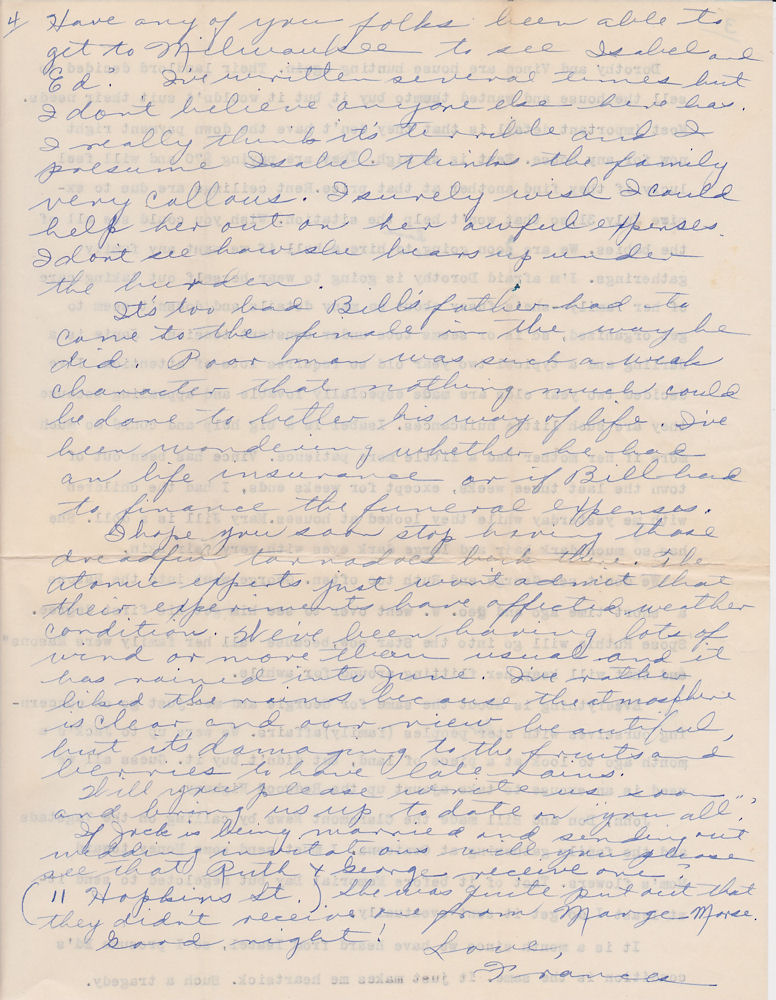 4 Have any of you folks been able to
get to Milwaukee to see Isabel and
Ed? I've written several times but
I don't believe anyone else here has.
I really think it's terrible and I
presume Isabel thinks the family
very callous. I surely wish I could
help her out on her awful expenses.
I don't see how she bears up under
the burden.
It's too bad Bill's father had to
come to the finale in the way he
did. Poor man was such a weak
character that nothing much could
be done to better his way of life. I've
been wondering whether he had
an life insurance or if Bill had
to finance the funeral expenses.
I hope you soon stop having those
dreadful tornadoes back there. The
atomic experts just won't admit that
their experiments have affected weather
condition. We've been having lots of
wind or more than usual and it
has rained into June. I've rather
liked the rains because the atmosphere
is clear and our view beautiful,
but it's damaging to the fruits and
berries to have late rains.
Will you please write us soon
and bring us up to date on "you all"?
If Jack is being married and sending out
wedding invitations will you please
see that Ruth & George receive one?
(11 Hopkins St.) She was quite put out that
they didn't receive one from Marge Morse.
Good night! Love,
Frances